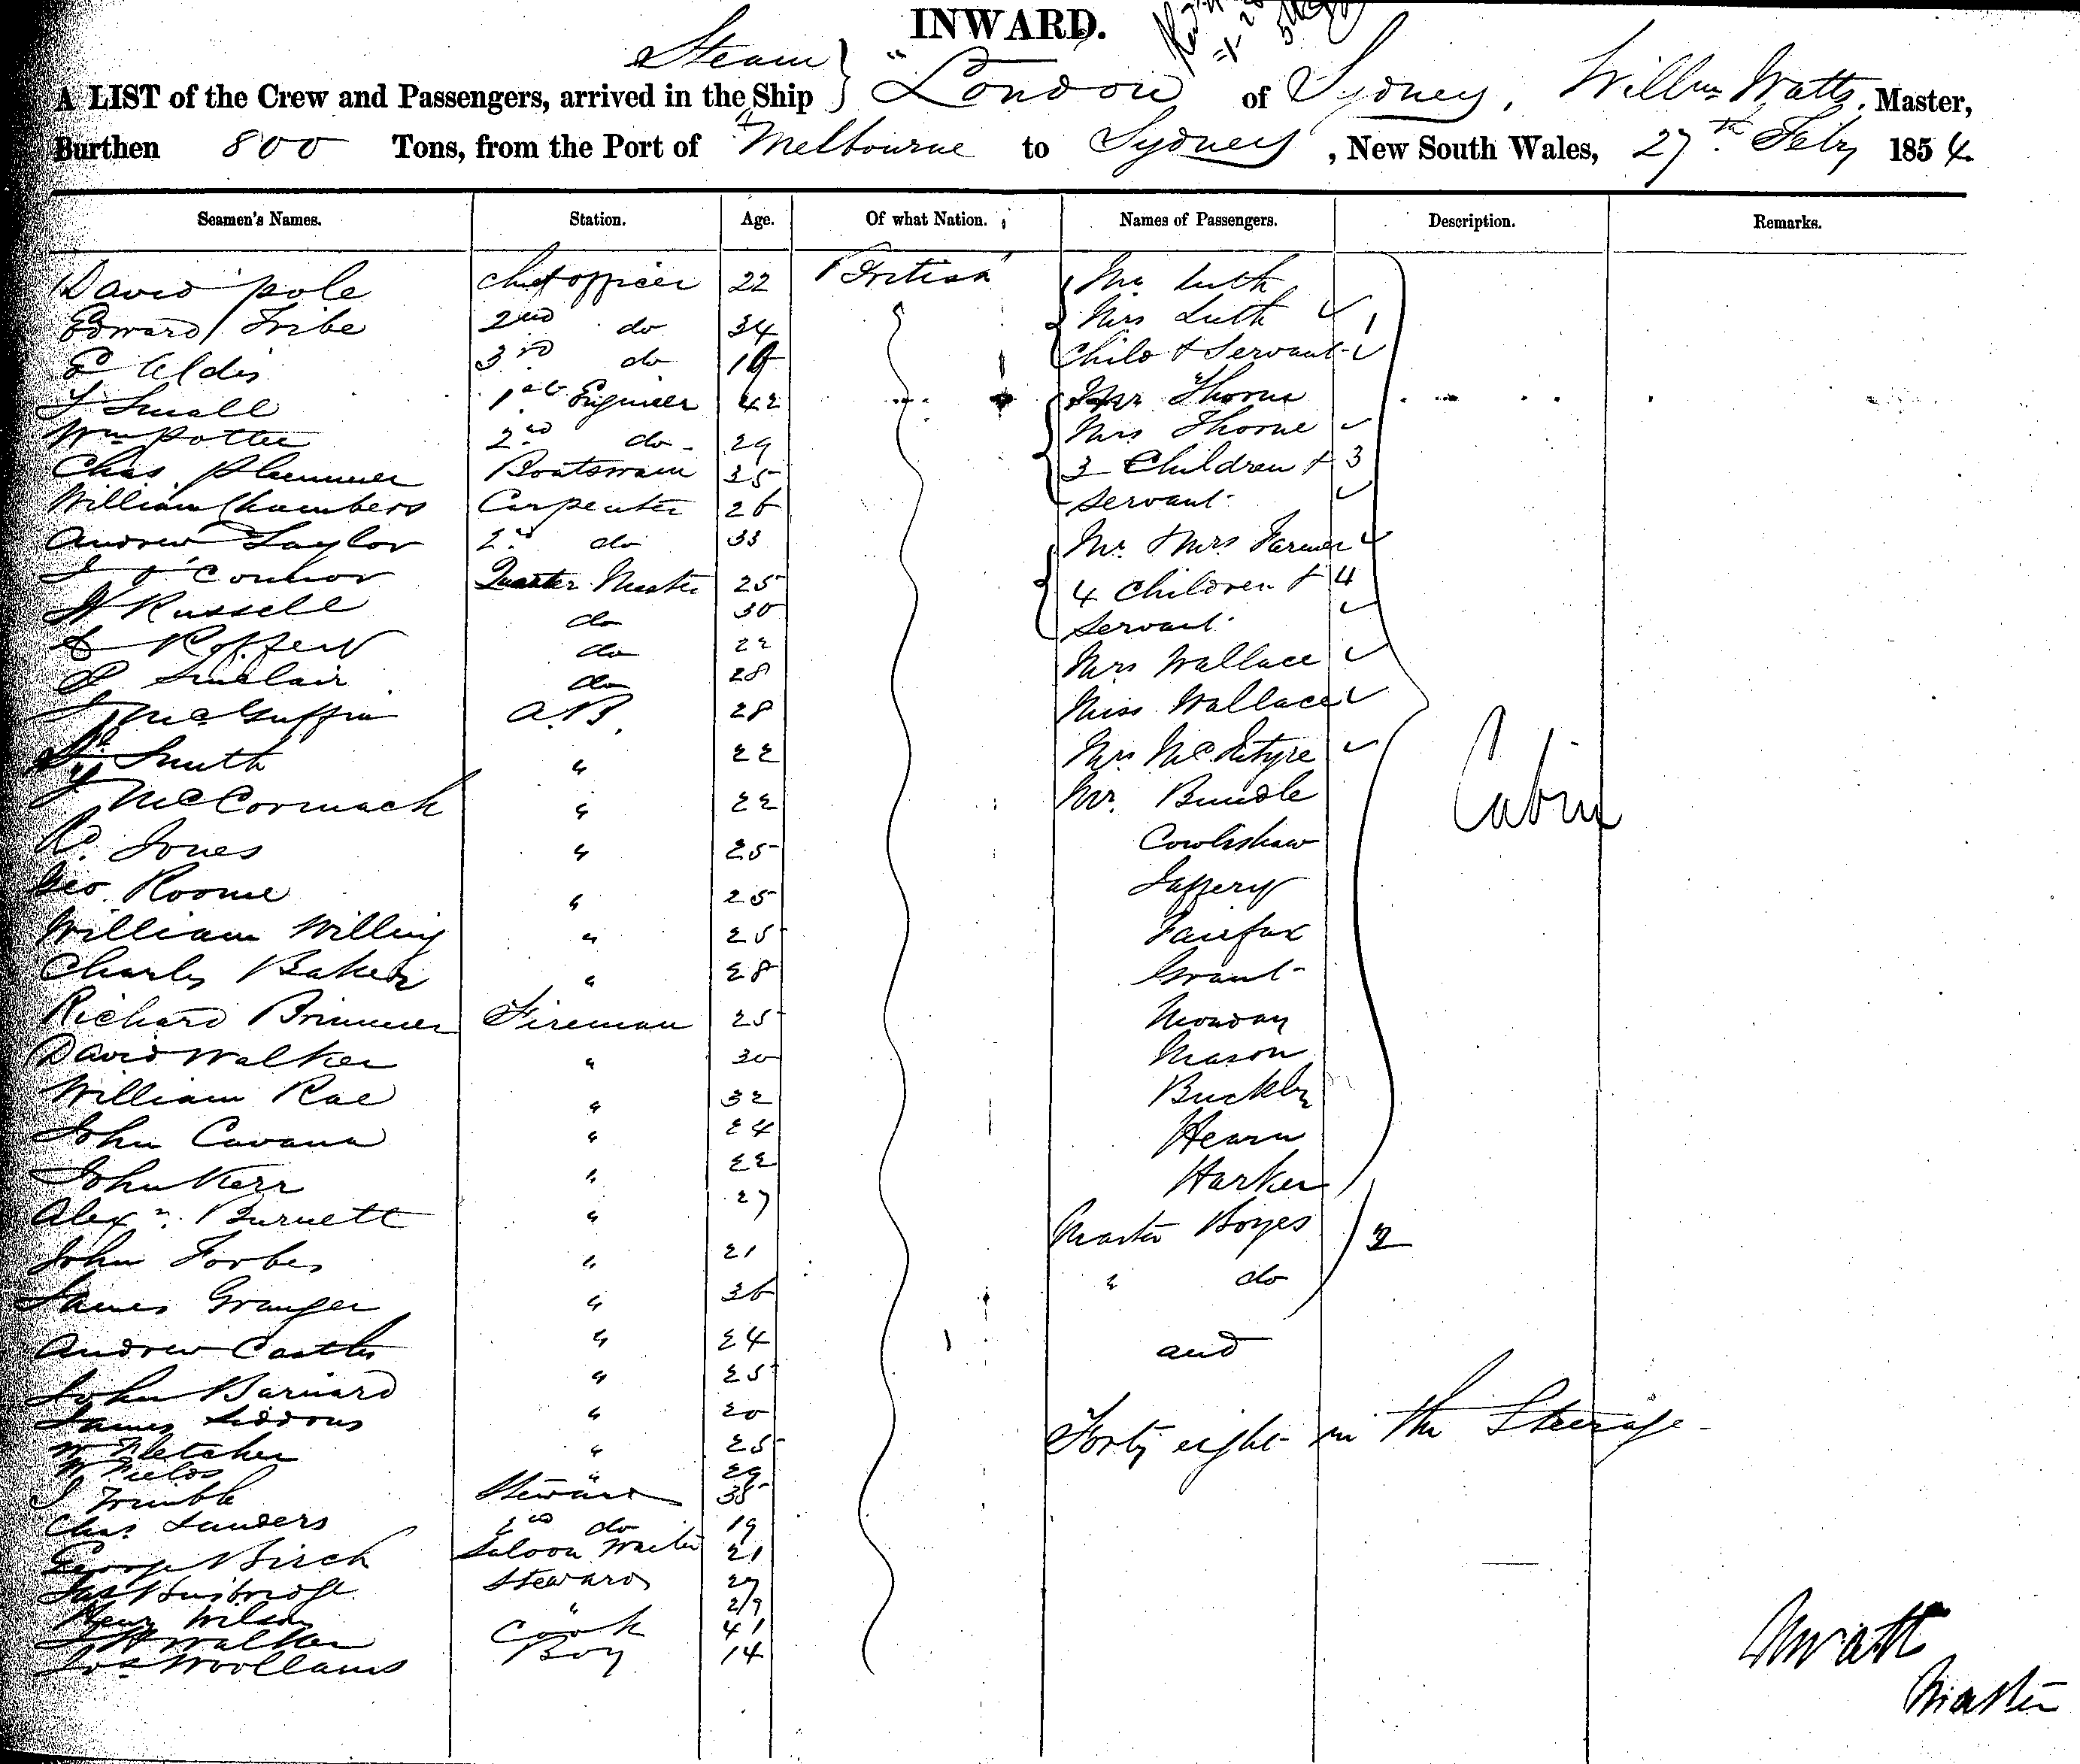 INWARD.
Steam
A LIST of the Crew and Passengers, arrived in the Ship } "London of Sydney, Willm Watts, Master,
Burthen 800 Tons, from the Port of Melbourne to Sydney, New South Wales, 27th Feby 1854.
Seamen's Names. Station. Age. Of what Nation. Names of Passengers. Description. Remarks.
David Pole Chief officer 22 British Mr Luth
Edward Tribe 2nd do 34 Mrs Luth 1
E Aldis 3rd do Child & Servant
J Small 1st Engineer 42 Mr Thorne
Wm Potter 2nd do 29 Mrs Thorne
Chas Plummer Boatswain 35 3 Children & 3
William Chambers Carpenter 26 Servant
Andrew Taylor 2nd do 33 Mr & Mrs Farmer
J O'Connor Quarter Master 25 4 Children & 4
W Russell do 30 Servant
do 22 Mrs Wallace
P Sinclair do 28 Miss Wallace
J McGuffin A.B. 28 Mrs McIntyre
Smith " 22 Mr. Bundle
McCormack " 22 Cowlishaw
Rd. Jones " 25 Jaffery
Geo. Roome " 25 Fairfax
William Willing " 25 Grant
Charles Baker " 28 Monday
Richard Brimmer Fireman 25 Mason
David Walker " 30 Buckley
William Rae " 32 Hearn
John Cavana " 24 Harker
John Kerr " 22
Alexr. Burnett " 27 Master Boyes 2
John Forbes " 21 " do
James Granger " 36
Andrew Castles " 24 and
John Barnard " 25
James Siddons " 20 Forty eight in the Steerage
W Fletcher " 25
W Fields " 29
J Trimble Steward 35
Chas. Sanders 2nd do 19
George Birch Saloon Waiter 21
Jas Busbridge Steward 27
Henry Wilson " 29
J H Walker Cook 41
Jos Woollams Boy 14
Cabin
W Watts
Master